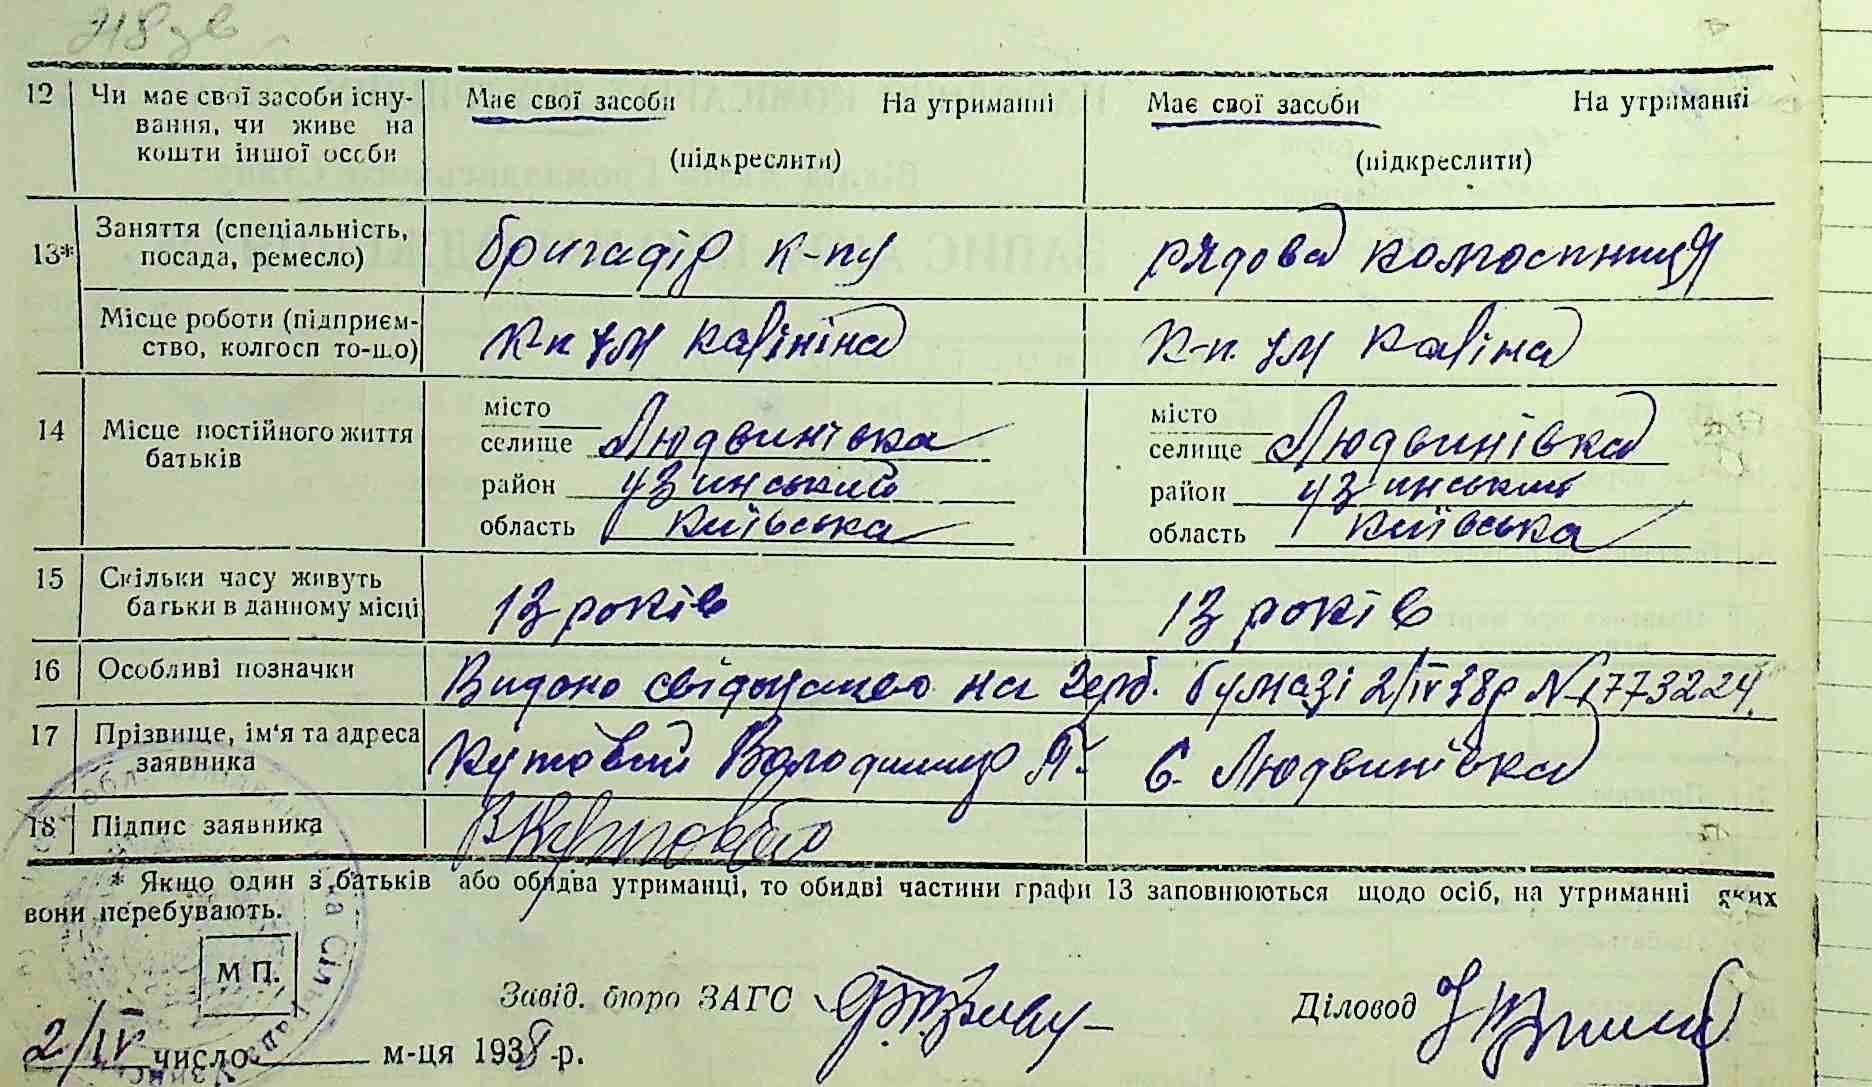 12 Чи має свої засоби існу-
вання, чи живе на
кошти іншої особи
Має свої засоби На утриманні
(підкреслити)
Має свої засоби На утриманні
(підкреслити)
13* Заняття (спеціальність,
посада, ремесло)
бригадір к-пу
рядова колгоспниця
Місце роботи (підприєм-
ство, колгосп то-що)
К-п ім Калініна
К-п. ім Каліна
14 Місце постійного життя
батьків
місто
селище Людвинівка
район Узинський
область Київська
місто
селище Людвинівка
район Узинський
область Київська
15 Скільки часу живуть
батьки в данному місці
13 років
13 років
16 Особливі позначки
Видано свідоцтво на герб. бумазі 2/IV 38р № 1773224.
17 Прізвище, ім'я та адреса
заявника
Кутовий Володимир П. С. Людвинівка
18 Підпис заявника
* Якщо один з батьків або обидва утриманці, то обидві частини графи 13 заповнюються щодо осіб, на утриманні яких
вони перебувають.
М П.
Завід. бюро ЗАГС
Діловод
2/IV число м-ця 1938 р.